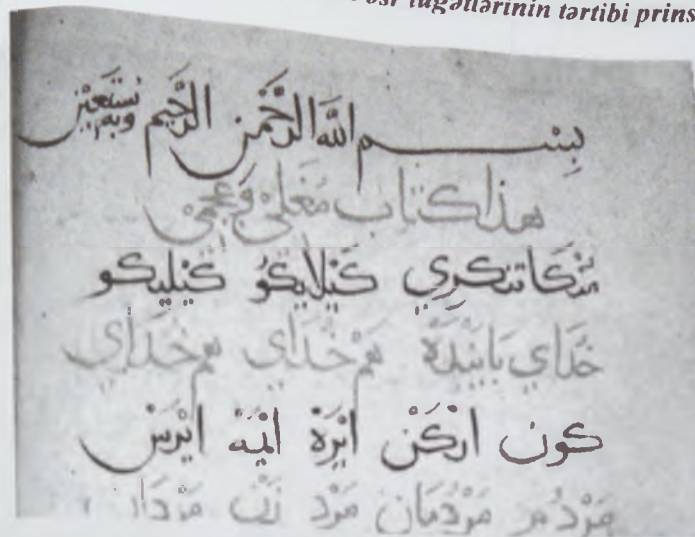 əsr lüğətlərinin tərtibi prins
بِسْم اللَّه الرَّحْمَن الرَّحِيم وبه نستعين
هذا كتاب مُغلي وعجمي
مُنْكَا تنكري كَيْلايكُو كَيْليكو
خُدَاي بَايَنْدَهْ هَم خُدَاي هم خداي
كون اَرْكَنْ اَيْرَهْ اَيْمَهْ اَيْرَسْ
مَرْدُم مَرْدُمَان مَرْد زَنْ مَرْدَان